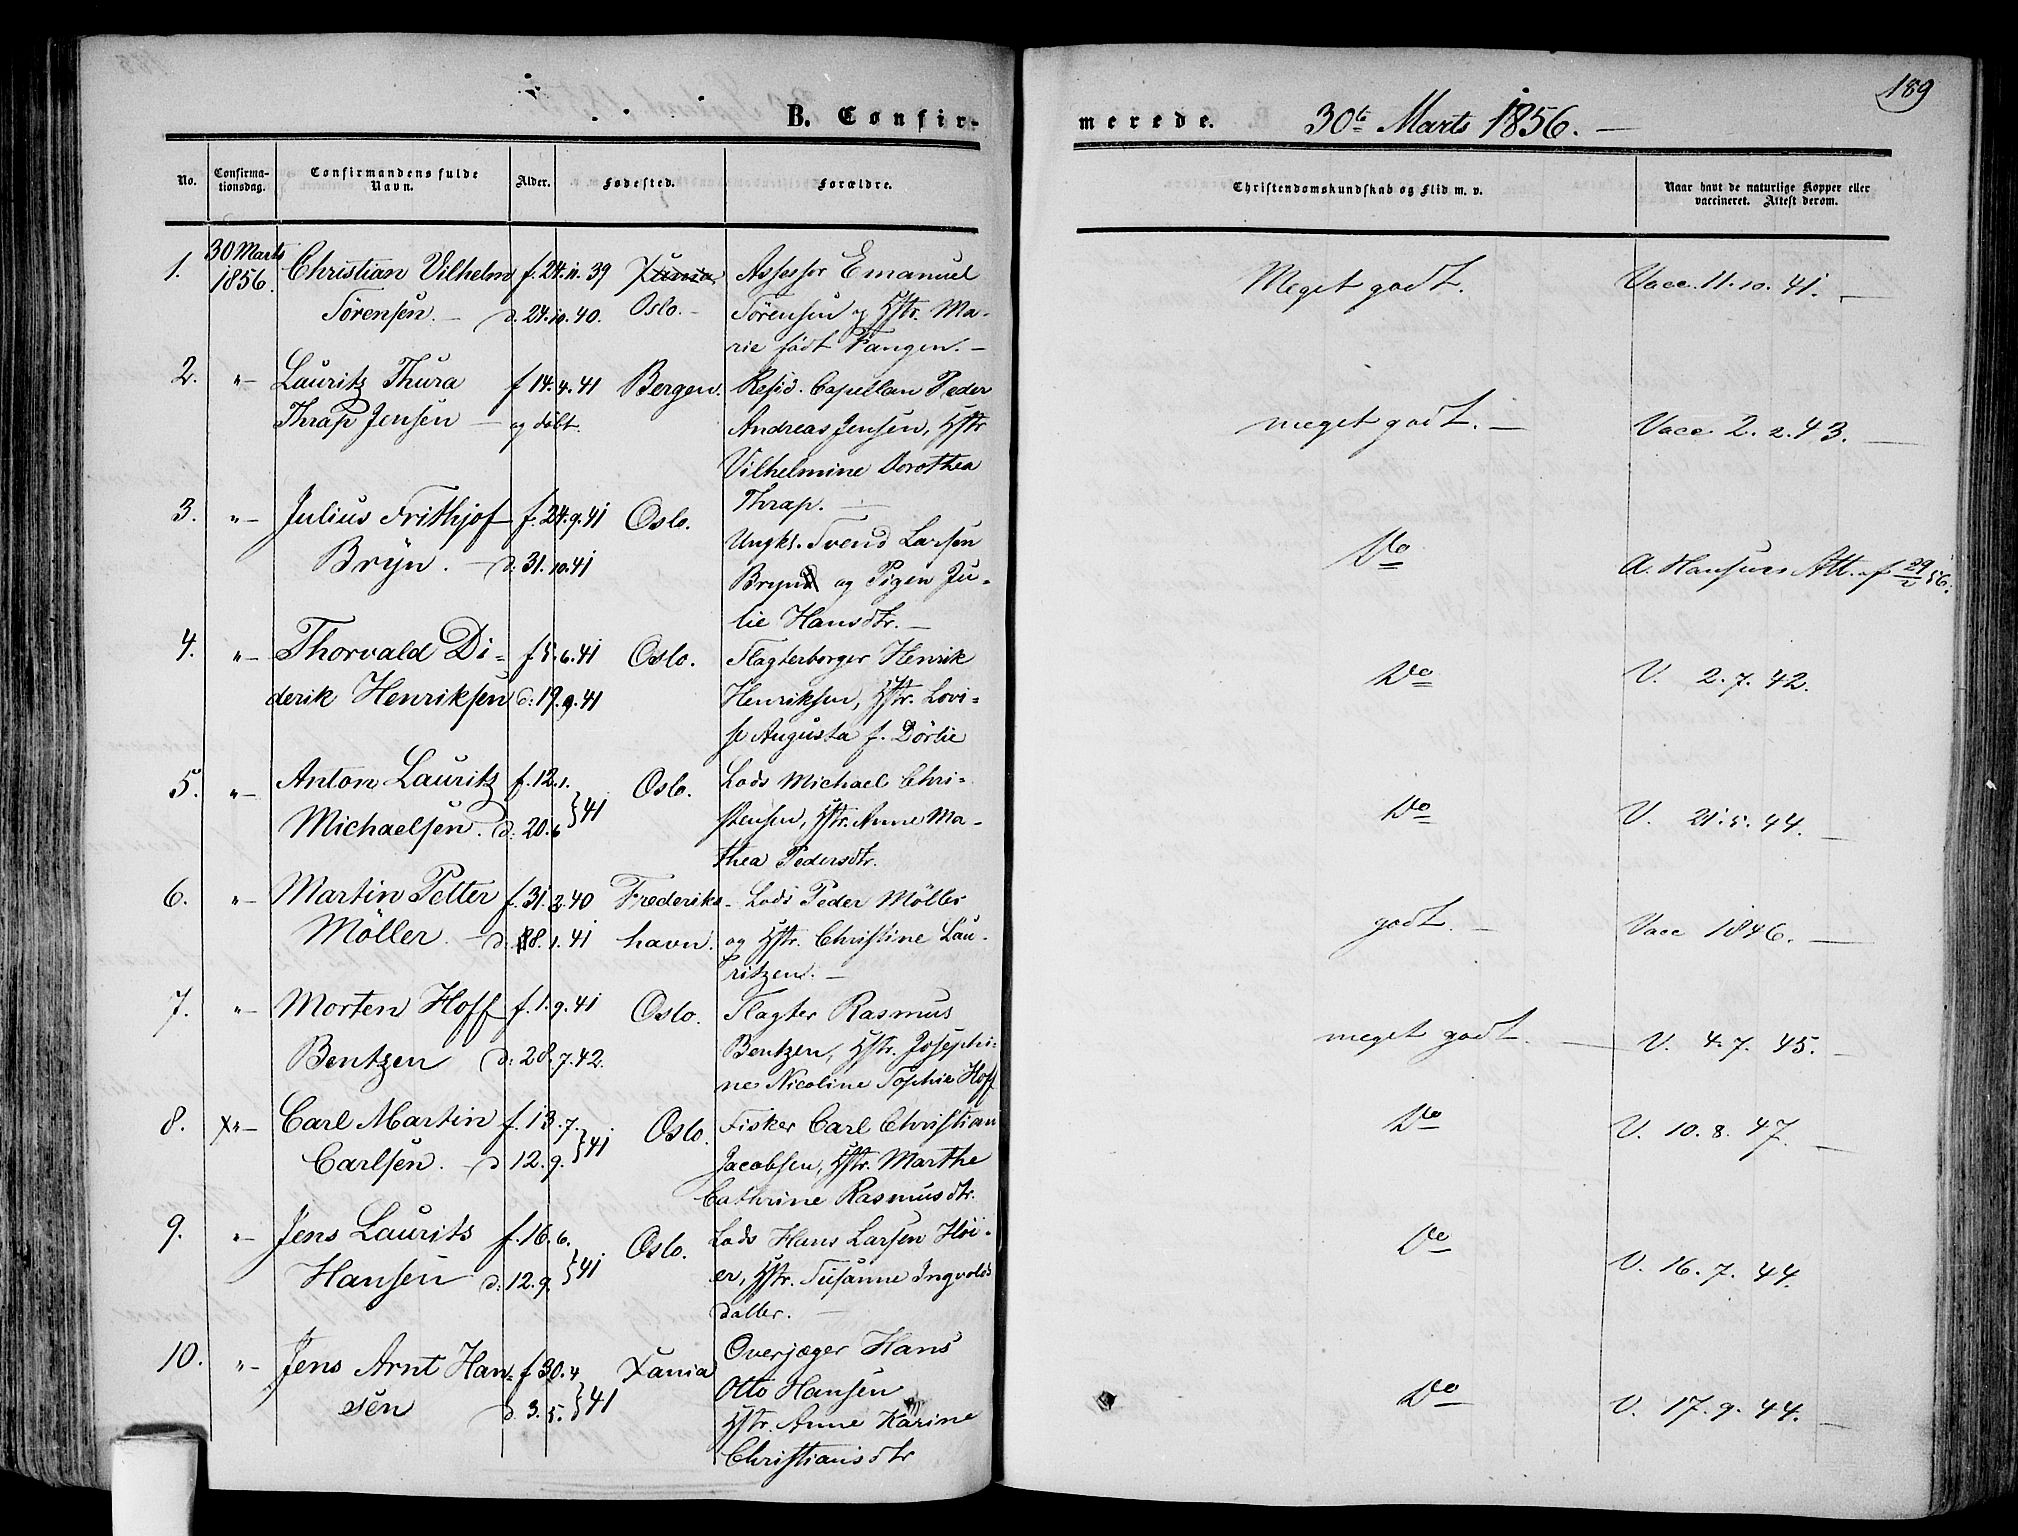 189
B. Confir-
merede. 30te Marts 1856. —
No.
Confirma-
tionsdag.
Confirmandens fulde
Navn.
Alder.
Fødested.
Forældre.
Christendomskundskab og Flid m. v.
Naar havt de naturlige Kopper eller
vaccineret. Attest derom.
1. 30 Marts Christian Vilhelm f. 24. 11. 39 Xania Assessor Emanuel Meget godt. Vacc. 11. 10. 41. —
1856. Sørensen. — d. 24. 10. 40. Oslo. — Sørensen og Hstr. Ma-
rie født Fangen. —
2. "— Lauritz Thura f 14. 4. 41 Bergen. Resid. Capellan Peder meget godt. — Vacc 2. 2. 43. —
Thrap Jensen — og døbt. Andreas Jensen, Hstr
Vilhelmine Dorothea
Thrap. —
3. "— Julius Frithjof f. 24. 9. 41 Oslo. Ungk. Svend Larsen Do A. Hansens Att. af 29/2 56.
Bryn. — d. 31. 10. 41 Bryn og Pigen Ju-
lie Hansdtr. —
4. "— Thorvald Di- f 5. 6. 41 Oslo. Slagterborger Henrik Do V. 2. 7. 42.
derik Henriksen d. 19. 9. 41 Henriksen, Hstr. Lovi-
se Augusta f. Dörlie
5. "— Anton Lauritz f. 12. 1. } 41 Oslo. Lods Michael Chri- Do V. 21. 5. 44. —
Michaelsen. d. 20. 6 stensen, Hstr. Anne Ma-
thea Pedersdtr.
6. "— Martin Petter f. 31. 3. 40 Frederiks- Lods Peder Möller godt. — Vacc 1846. —
Möller. — d. 8. 1. 41 havn. og Hstr. Christine Lau-
ritzen. —
7. "— Morten Hoff f. 1. 9. 41 Oslo. Slagter Rasmus meget godt. — V. 4. 7. 45. —
Bentzen d. 28. 7. 42. Bentzen, Hstr. Josephi-
ne Nicoline Sophie Hoff
8. X"— Carl Martin f. 13. 7. } 41 Oslo. Fisker Carl Christian Do V. 10. 8. 47. —
Carlsen. — d 12. 9. Jacobsen, Hstr. Marthe
Cathrine Rasmusdtr.
9. "— Jens Laurits f. 16. 6. } 41 Oslo. Lods Hans Larsen Höi- Do V. 16. 7. 44.
Hansen d. 12. 9. er, Hstr. Susanne Ingvolds
datter. —
10. "— Jens Arnt Han- f 30. 4 } 41 Xania Overjæger Hans Do V. 17. 9. 44. —
sen d. 3. 5. Otto Hansen
Hstr. Anne Karine
Christiansdtr